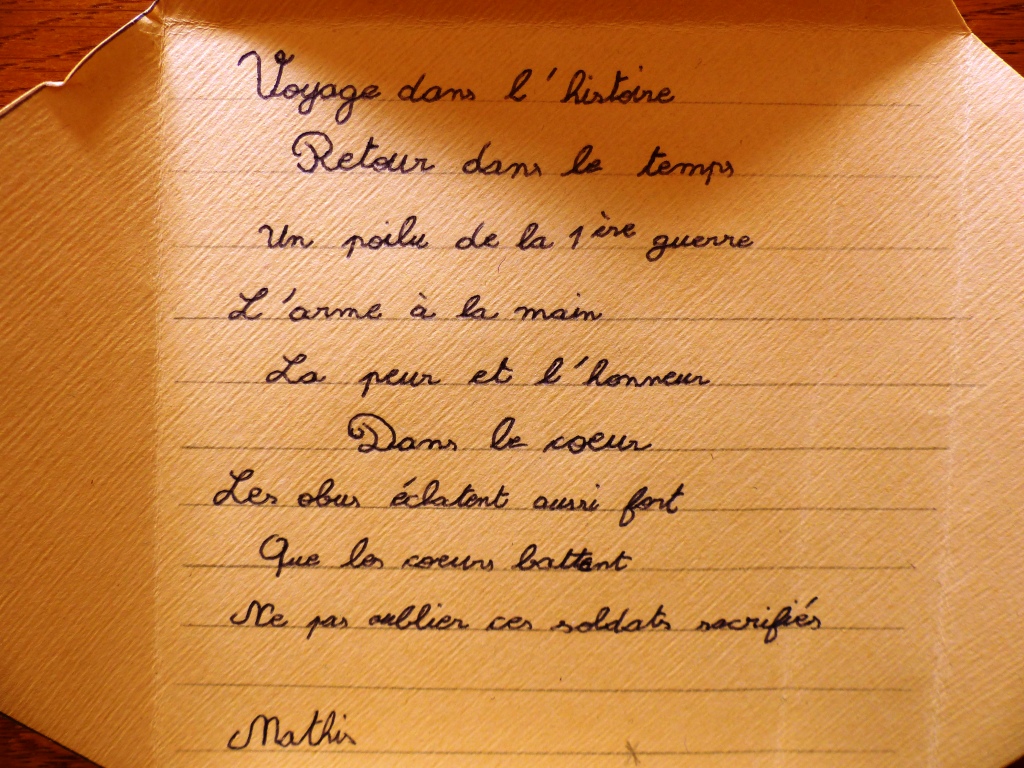 Voyage dans l'histoire
Retour dans le temps
Un poilu de la 1ère guerre
L'arme à la main
La peur et l'honneur
Dans le coeur
Les obus éclatent aussi fort
Que les coeurs battent
Ne pas oublier ces soldats sacrifiés
Mathis